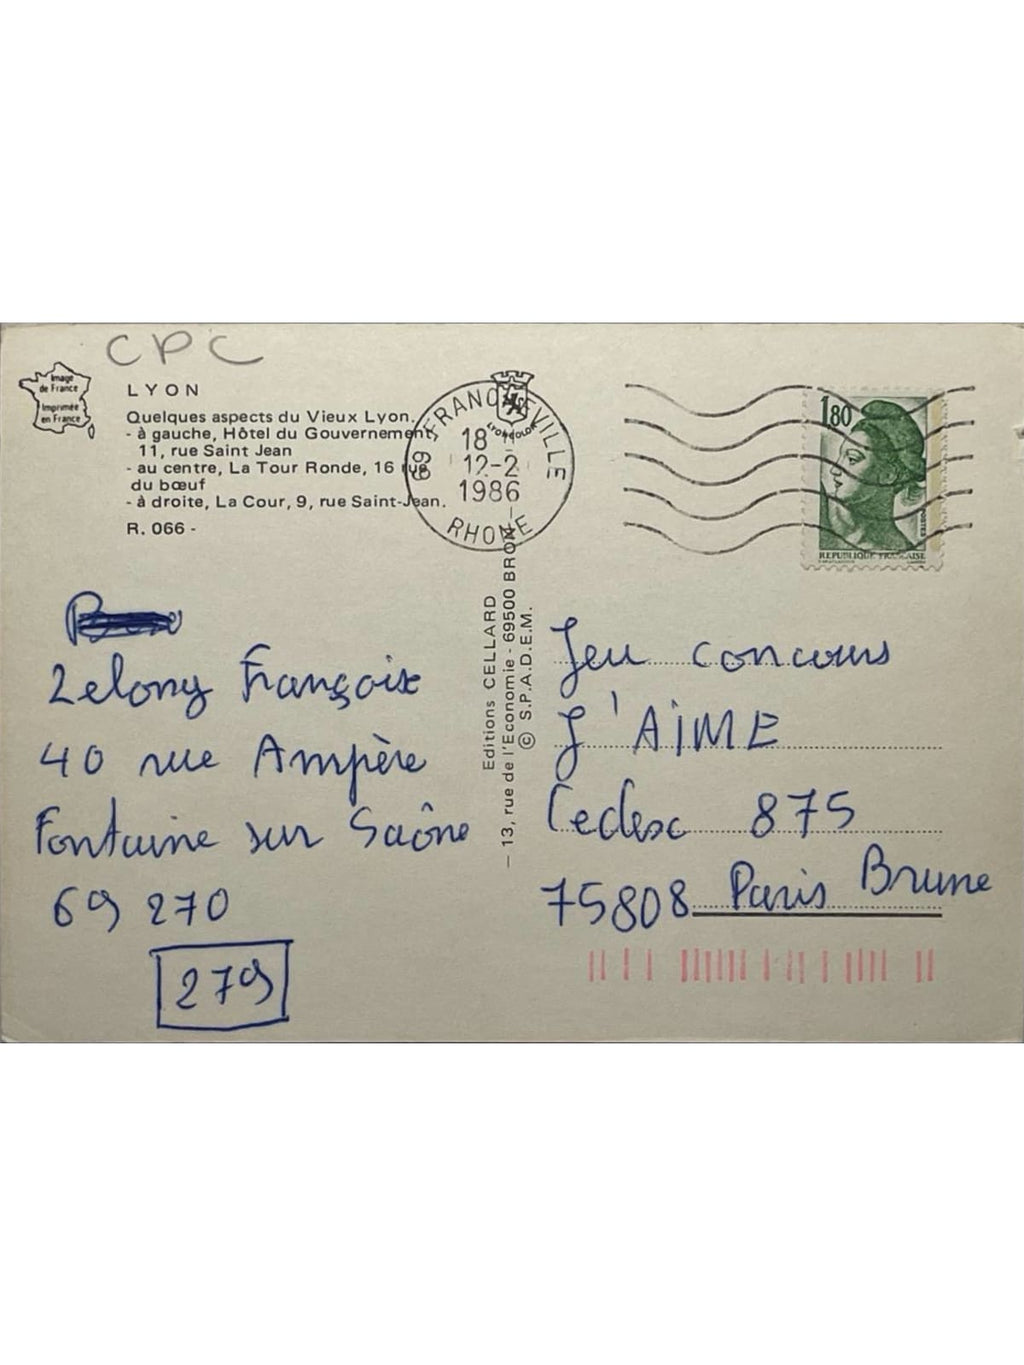 CPC
Image
de France
Imprimée
en France
LYON
Quelques aspects du Vieux Lyon.
- à gauche, Hôtel du Gouvernement,
11, rue Saint Jean
- au centre, La Tour Ronde, 16 rue
du bœuf
- à droite, La Cour, 9, rue Saint-Jean.
R. 066 -
69 FRANCHEVILLE
18
12-2
1986
RHONE
1,80
POSTES
REPUBLIQUE FRANÇAISE
Editions CELLARD
- 13, rue de l'Economie - 69500 BRON -
© S.P.A.D.E.M.
Zelony Françoise
40 rue Ampère
Fontaine sur Saône
69 270
279
Jeu concours
J'AiME
Cedesc 875
75808 Paris Brune